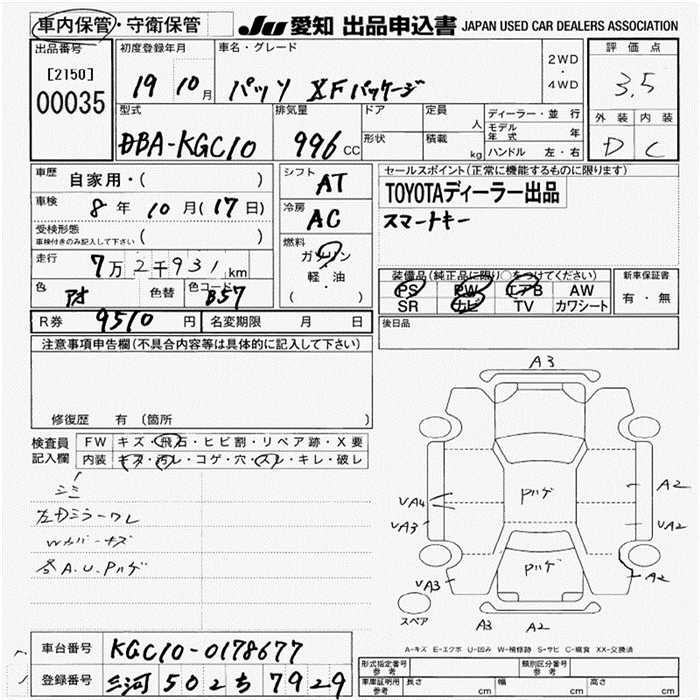 車内保管・守衛保管
JU 愛知 出品申込書 JAPAN USED CAR DEALERS ASSOCIATION
出品番号
[2150]
00035
初度登録年月
19 10月
車名・グレード
パッソ XFパッケージ
2WD
・
4WD
評価点
3.5
外装 内装
D C
型式
DBA-KGC10
排気量
996 CC
ドア
形状
定員 人
積載 kg
ディーラー・並行
モデル年式 年
ハンドル 左・右
車歴 自家用・( )
車検 8年10月(17日)
受検形態
車検付きのみ記入して下さい ( )
走行 7万2千931km
色 アオ 色替 色コード B57
シフト AT
冷房 AC
燃料
ガソリン
軽・油
( )
セールスポイント(正常に機能するものに限ります)
TOYOTAディーラー出品
スマートキー
装備品(純正品に限り○をつけてください)
PS PW エアB AW
SR ナビ TV カワシート
新車保証書
有・無
R券 9510円 名変期限 月 日
後日品
注意事項申告欄(不具合内容等は具体的に記入して下さい)
修復歴 有 (箇所 )
検査員記入欄
FW キズ・飛石・ヒビ割・リペア跡・X要
内装 キズ・汚レ・コゲ・穴・スレ・キレ・破レ
左Dミラーワレ
Wカバーキズ
各A.U.Pハゲ
A3
UA4
UA3
UA3
Pハゲ
Pハゲ
A2
UA2
A2
スペア
A3 A2
A-キズ E-エクボ U-凹み W-補修跡 S-サビ C-腐食 XX-交換済
車台番号 KGC10-0178677
登録番号 三河 502 ち 7929
形式指定番号 参考
類別区分番号 参考
車庫証明用 参考 長さ cm 幅 cm 高さ cm